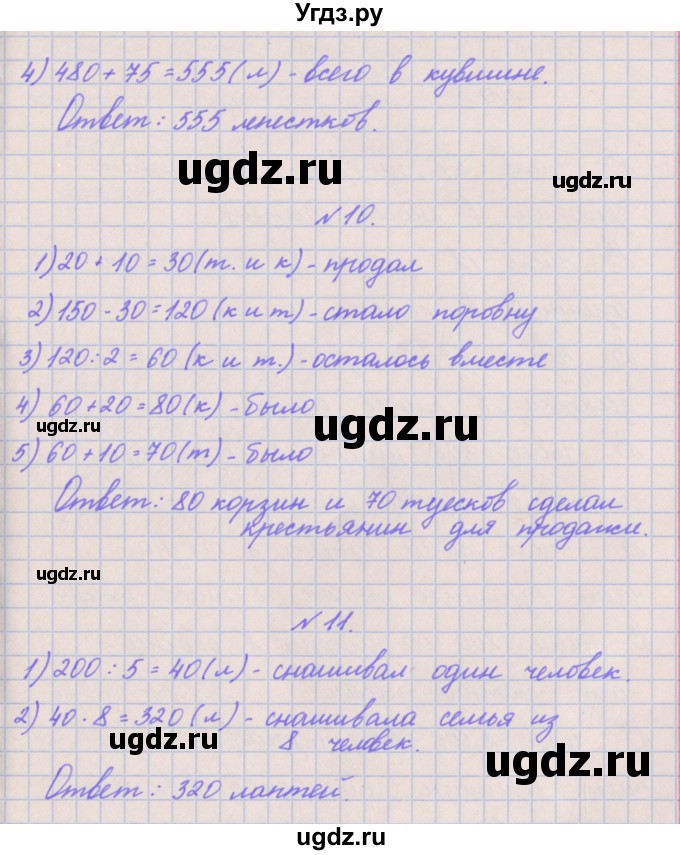 Угдз.ру
4) 480 + 75 = 555 (л) - всего в кувшине.
Ответ: 555 лепестков.
ugdz.ru ugdz.ru
N 10.
1) 20 + 10 = 30 (т. и к) - продал
2) 150 - 30 = 120 (к и т) - стало поровну
3) 120 : 2 = 60 (к и т.) - осталось вместе
4) 60 + 20 = 80 (к) - было
ugdz.ru ugdz.ru
5) 60 + 10 = 70 (т) - было
Ответ: 80 корзин и 70 туесков сделал
крестьянин для продажи.
ugdz.ru
N 11.
1) 200 : 5 = 40 (л) - снашивал один человек.
2) 40 · 8 = 320 (л) - снашивала семья из
8 человек.
ugdz.ru ugdz.ru
Ответ: 320 лаптей.
ugdz.ru